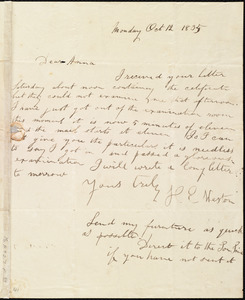 Monday Oct 12 1835
Dear Anna
I received your letter
Saturday about noon containing the certificate
but they could not examine me that afternoon.
I have just got out of the examination room
this moment it is now 5 minutes of eleven
and the mail starts at eleven So I can
not give you the particulars it is needless
to say I got in, and passed a glorious
examination I will write a long letter
to morrow
Yours Only H. E. Weston
Send my furniture as quick
as possible
Direct it to the
if you have not sent it